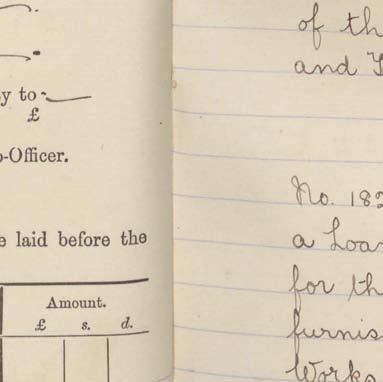 y to
£
-Officer.
e laid before the
Amount.
£ s. d.
of th
and
No. 182
a Loan
for th
furnis
Works